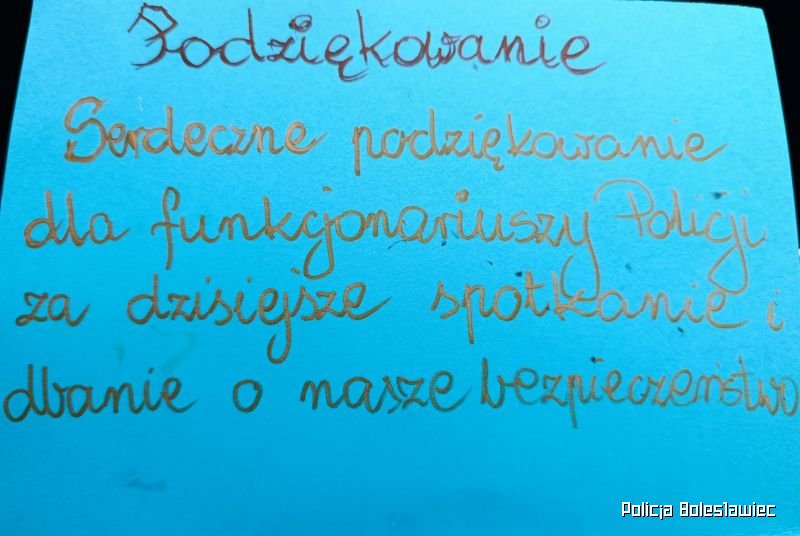 Podziękowanie
Serdeczne podziękowanie
dla funkcjonariuszy Policji
za dzisiejsze spotkanie i
dbanie o nasze bezpieczeństwo
Policja Bolesławiec